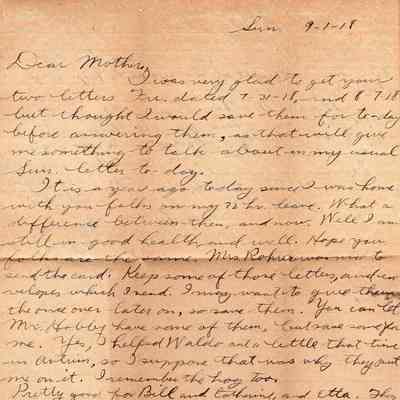 Sun 9-1-18
Dear Mother,
I was very glad to get your
two letters Fri. dated 7-31-18, and 8-7-18
but thought I would save them for to-day
before answering them, as that will give
me something to talk about in my usual
Sun. letter to-day.
It is a year ago today since I was home
with you folks on my 72 hr. leave. What a
difference between then, and now. Well I am
still in good health, and well. Hope you
folks are the same. Mrs. Rohrer was nice to
send the card. Keep some of those letters, and en
velopes which I send. I may want to give them
the once over later on, so save them. You can let
Mr. Hobby have some of them, but save some for
me. Yes, I helped Waldo out a little that time
in so I suppose that was why they put
me on it. I remember the boy too.
Pretty good for Bill and Catherine, and Etta. They